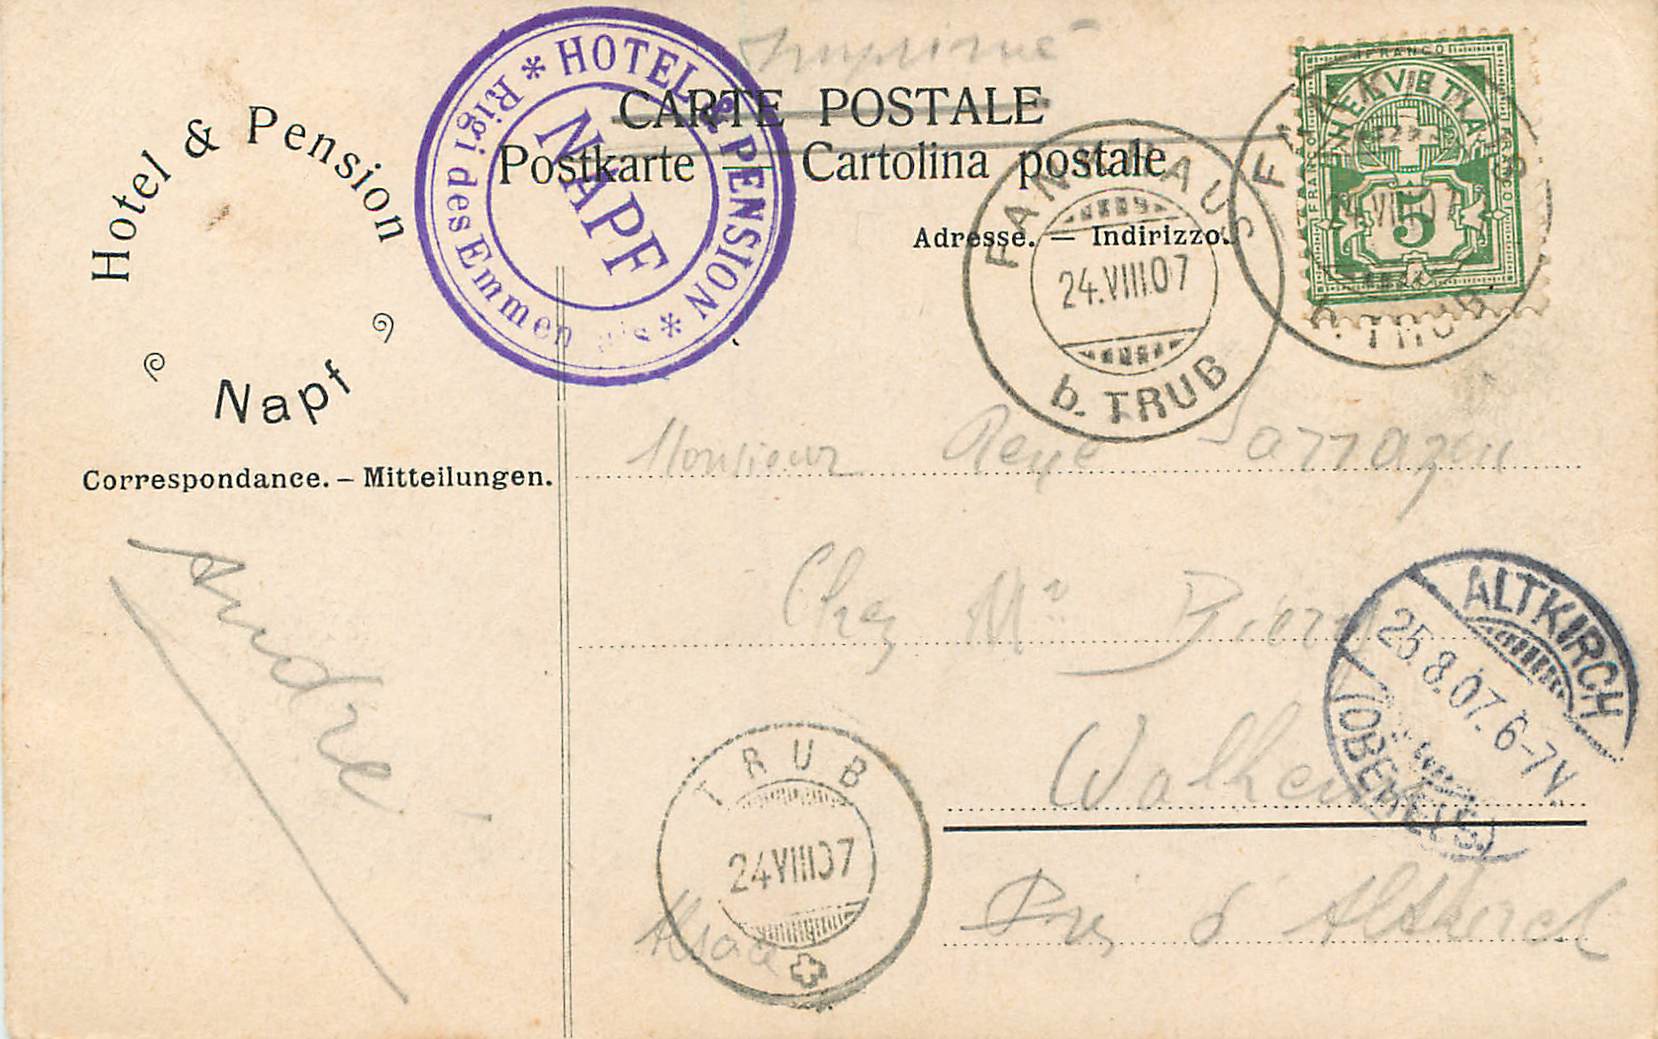 Imprimé
CARTE POSTALE
Postkarte — Cartolina postale
Adresse. — Indirizzo.
Hotel & Pension
Napf
* HOTEL & PENSION *
Rigi des Emmen
NAPF
FANKHAUS
24.VIII.07
b. TRUB
FRANCO
HELVETIA
FRANCO
FRANCO
5
FANKHAUS
24.VIII.07
b. TRUB
Correspondance. – Mitteilungen.
Monsieur René Sarrazin
Chez Mr
ALTKIRCH
25.8.07. 6-7V.
(OBERELS.)
André
Walheim
TRUB
24VIII07
Près d'Altkirch
Alsace